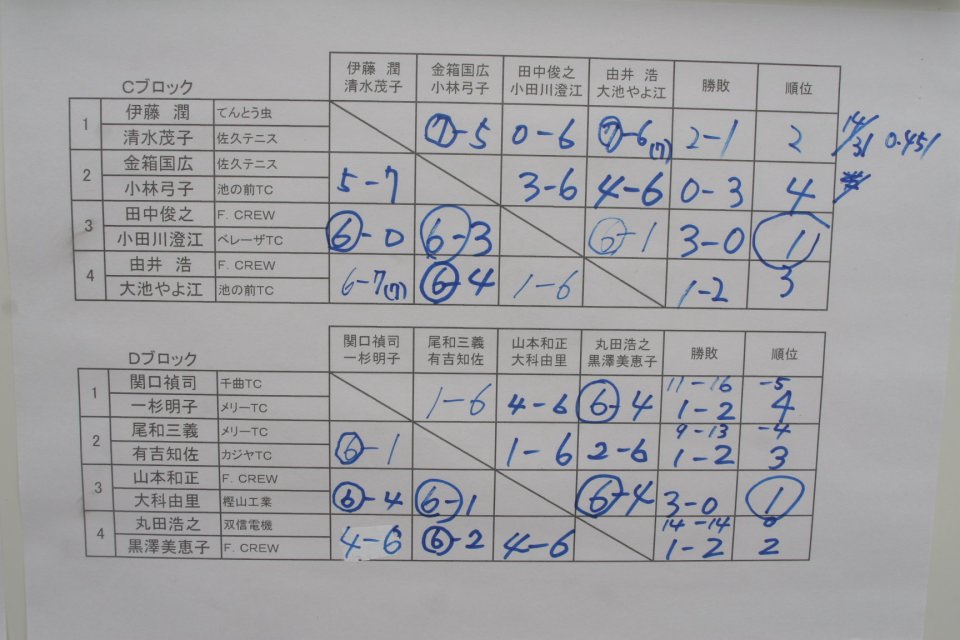 Cブロック
伊藤 潤 清水茂子 金箱国広 小林弓子 田中俊之 小田川澄江 由井 浩 大池やよ江 勝敗 順位
1 伊藤 潤 てんとう虫
清水茂子 佐久テニス 7-5 0-6 7-6(7) 2-1 2 14/31 0.451
2 金箱国広 佐久テニス
小林弓子 池の前TC 5-7 3-6 4-6 0-3 4
3 田中俊之 F. CREW
小田川澄江 ベレーザTC 6-0 6-3 6-1 3-0 1
4 由井 浩 F. CREW
大池やよ江 池の前TC 6-7(7) 6-4 1-6 1-2 3
Dブロック
関口禎司 一杉明子 尾和三義 有吉知佐 山本和正 大科由里 丸田浩之 黒澤美恵子 勝敗 順位
1 関口禎司 千曲TC 11-16 -5
一杉明子 メリーTC 1-6 4-6 6-4 1-2 4
2 尾和三義 メリーTC 9-13 -4
有吉知佐 カジヤTC 6-1 1-6 2-6 1-2 3
3 山本和正 F. CREW
大科由里 樫山工業 6-4 6-1 6-4 3-0 1
4 丸田浩之 双信電機 14-14 0
黒澤美恵子 F. CREW 4-6 6-2 4-6 1-2 2